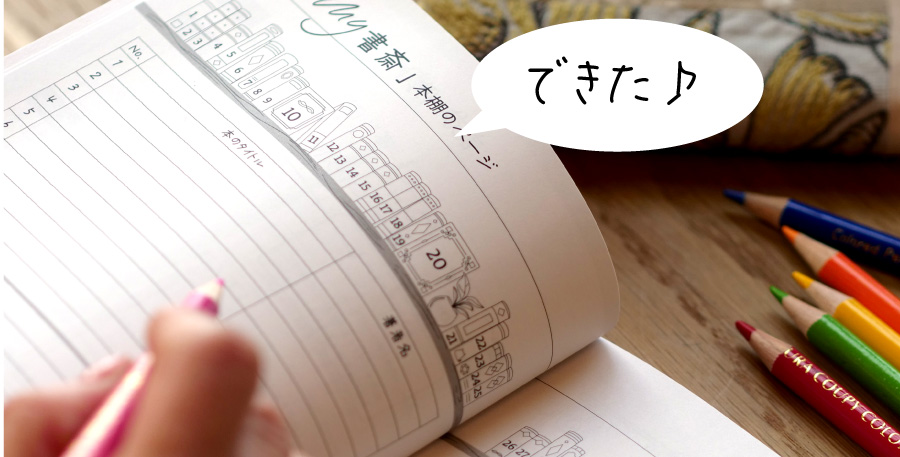 できた♪
My書斎」本棚のページ
1
2
3
4
5
6
7
8
9
10
11
12
13
14
15
16
17
18
19
20
21
22
23
24
25
26
27
No.
1
2
3
4
5
6
本のタイトル
著者名
Colored
URA COUPY COLO